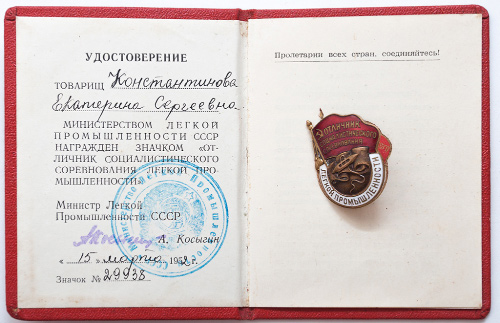 УДОСТОВЕРЕНИЕ
ТОВАРИЩ Константинова
Екатерина Сергеевна
МИНИСТЕРСТВОМ ЛЕГКОЙ
ПРОМЫШЛЕННОСТИ СССР
НАГРАЖДЕН ЗНАЧКОМ «ОТ-
ЛИЧНИК СОЦИАЛИСТИЧЕСКОГО
СОРЕВНОВАНИЯ ЛЕГКОЙ ПРО-
МЫШЛЕННОСТИ»
Министр Легкой
Промышленности СССР
А. Косыгин
«15» марта 1952 г.
Значок № 29938
Пролетарии всех стран, соединяйтесь!
ОТЛИЧНИК
СОЦИАЛИСТИЧЕСКОГО
ЛЕГКОЙ ПРОМЫШЛЕННОСТИ